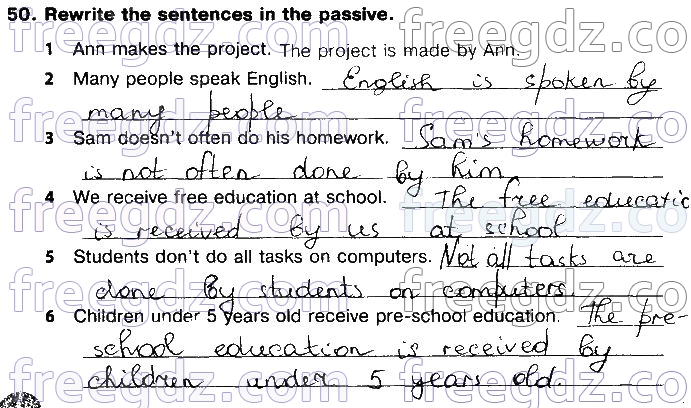 50. Rewrite the sentences in the passive.
1 Ann makes the project. The project is made by Ann.
2 Many people speak English. English is spoken by
many people
3 Sam doesn't often do his homework. Sam's homework
is not often done by him
4 We receive free education at school. The free educatio
is received by us at school
5 Students don't do all tasks on computers. Not all tasks are
done by students on computers.
6 Children under 5 years old receive pre-school education. The pre-
school education is received by
children under 5 years old.
freegdz.com